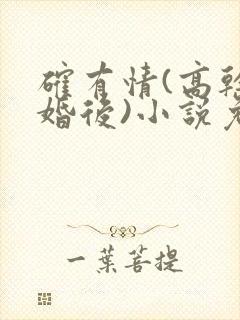 確有情(高幹
婚後)小說免
一葉菩提